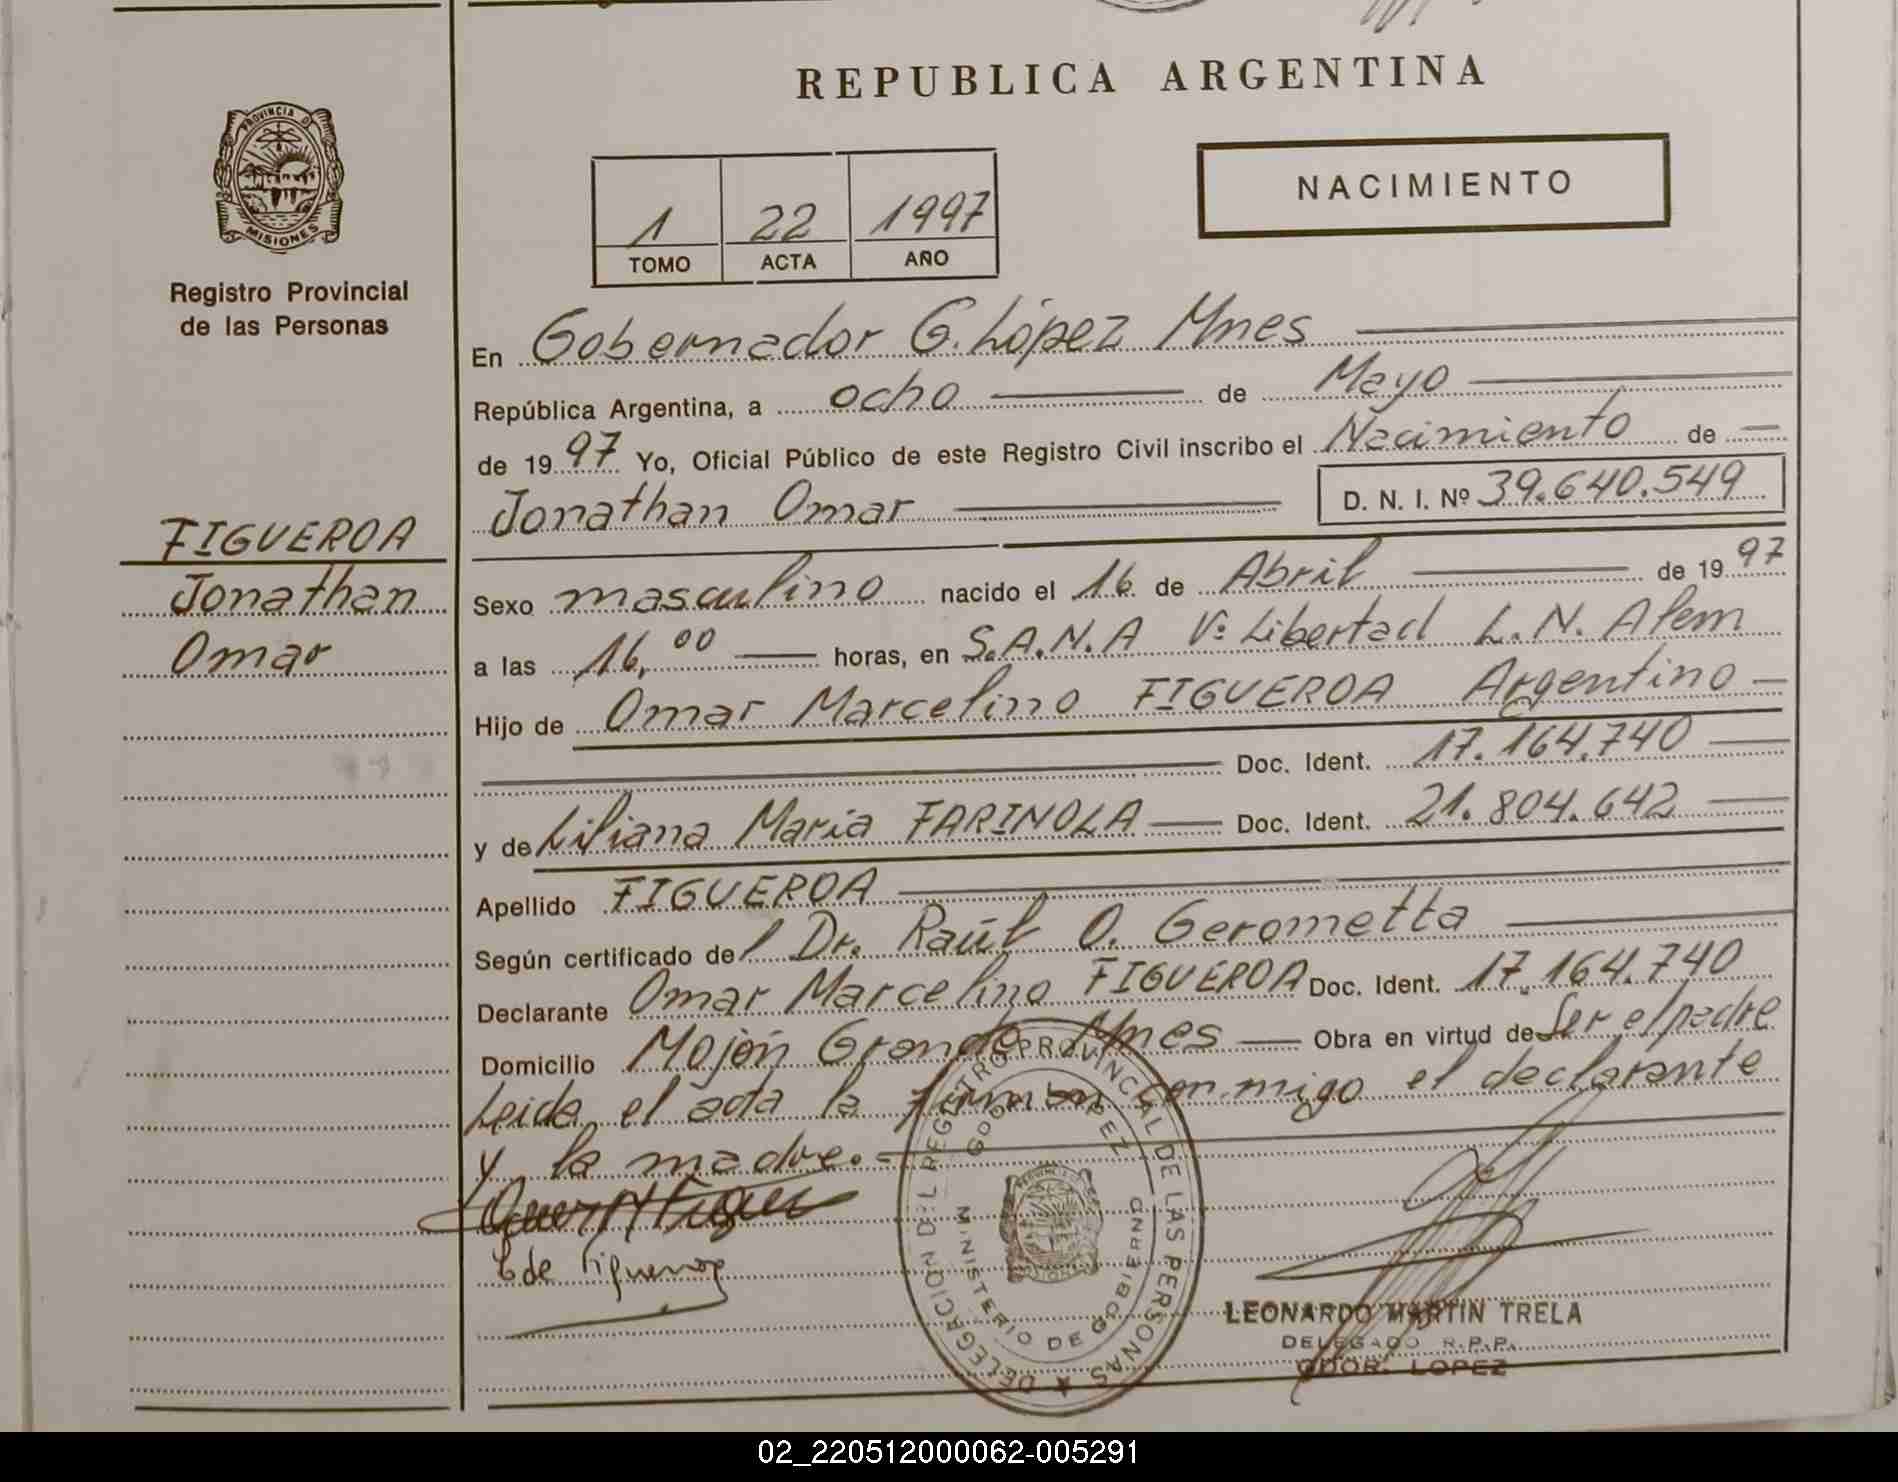 REPUBLICA ARGENTINA
PROVINCIA D
MISIONES
Registro Provincial
de las Personas
NACIMIENTO
1 22 1997
TOMO ACTA AÑO
En Gobernador G. López Mnes
República Argentina, a ocho de Mayo
de 1997 Yo, Oficial Público de este Registro Civil inscribo el Nacimiento de
Jonathan Omar D. N. I. Nº 39.640.549
FIGUEROA
Jonathan
Omar
Sexo masculino nacido el 16 de Abril de 1997
a las 16,00 horas, en S.A.N.A Vº Libertad L. N. Alem
Hijo de Omar Marcelino FIGUEROA Argentino
Doc. Ident. 17.164.740
y de Liliana Maria FARINOLA Doc. Ident. 21.804.642
Apellido FIGUEROA
Según certificado del Dr. Raúl O. Gerometta
Declarante Omar Marcelino FIGUEROA Doc. Ident. 17.164.740
Domicilio Mojón Grande Mnes Obra en virtud de Ser el padre
Leida el acta la firman conmigo el declarante
y la madre.
de Figueroa
DELEGACION DEL REGISTRO PROVINCIAL DE LAS PERSONAS
GDOR. LOPEZ
MINISTERIO DE GOBIERNO
LEONARDO MARTIN TRELA
DELEGADO R.P.P.
GDOR. LOPEZ
02_220512000062-005291